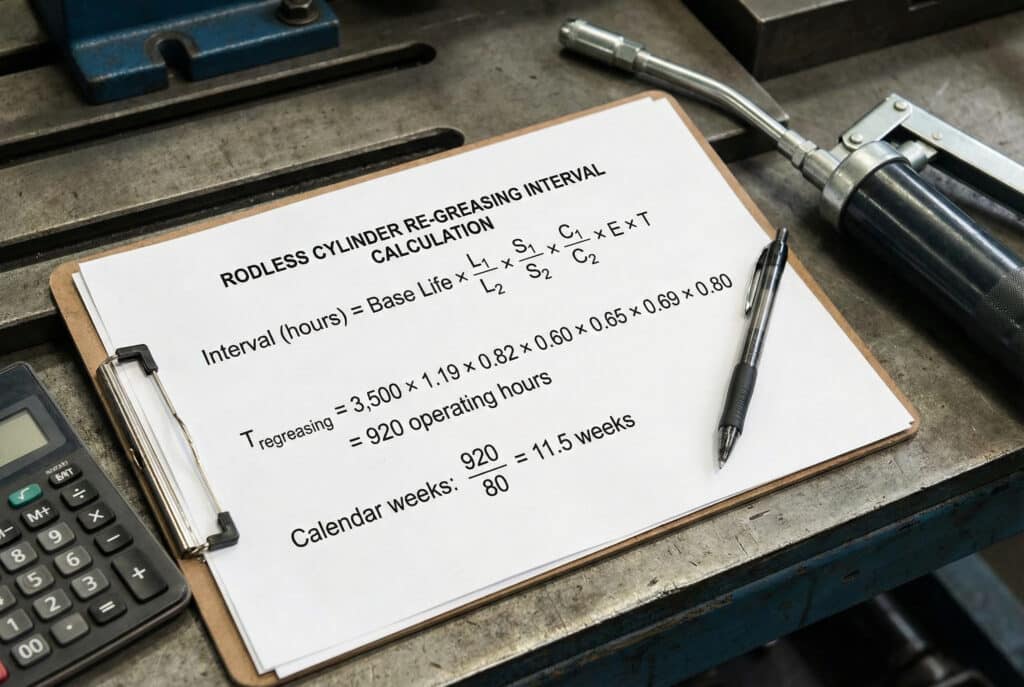 RODLESS CYLINDER RE-GREASING INTERVAL
CALCULATION
Interval (hours) = Base Life × L₁/L₂ × S₁/S₂ × C₁/C₂ × E × T
T regreasing = 3,500 × 1.19 × 0.82 × 0.60 × 0.65 × 0.69 × 0.80
= 920 operating hours
Calendar weeks: 920/80 = 11.5 weeks
√
÷
M+
×
8
9
−
5
6
+
2
3
1
=
00
.